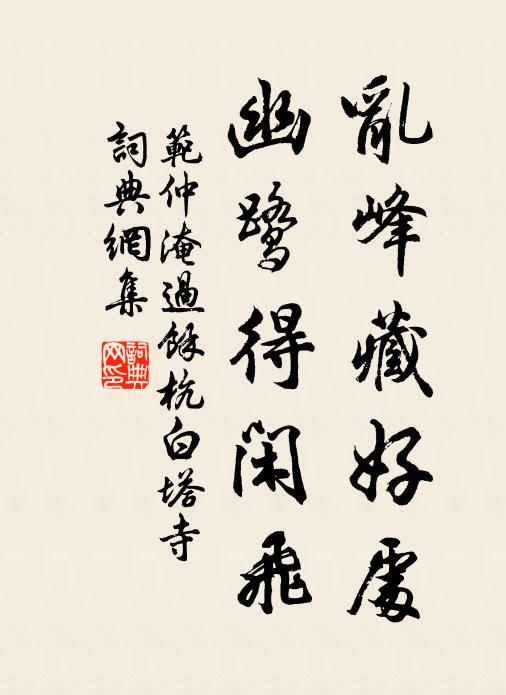 亂峰藏好處
幽鹭得閑飛
範仲淹過餘杭白塔寺
詞典網集
詞典網印